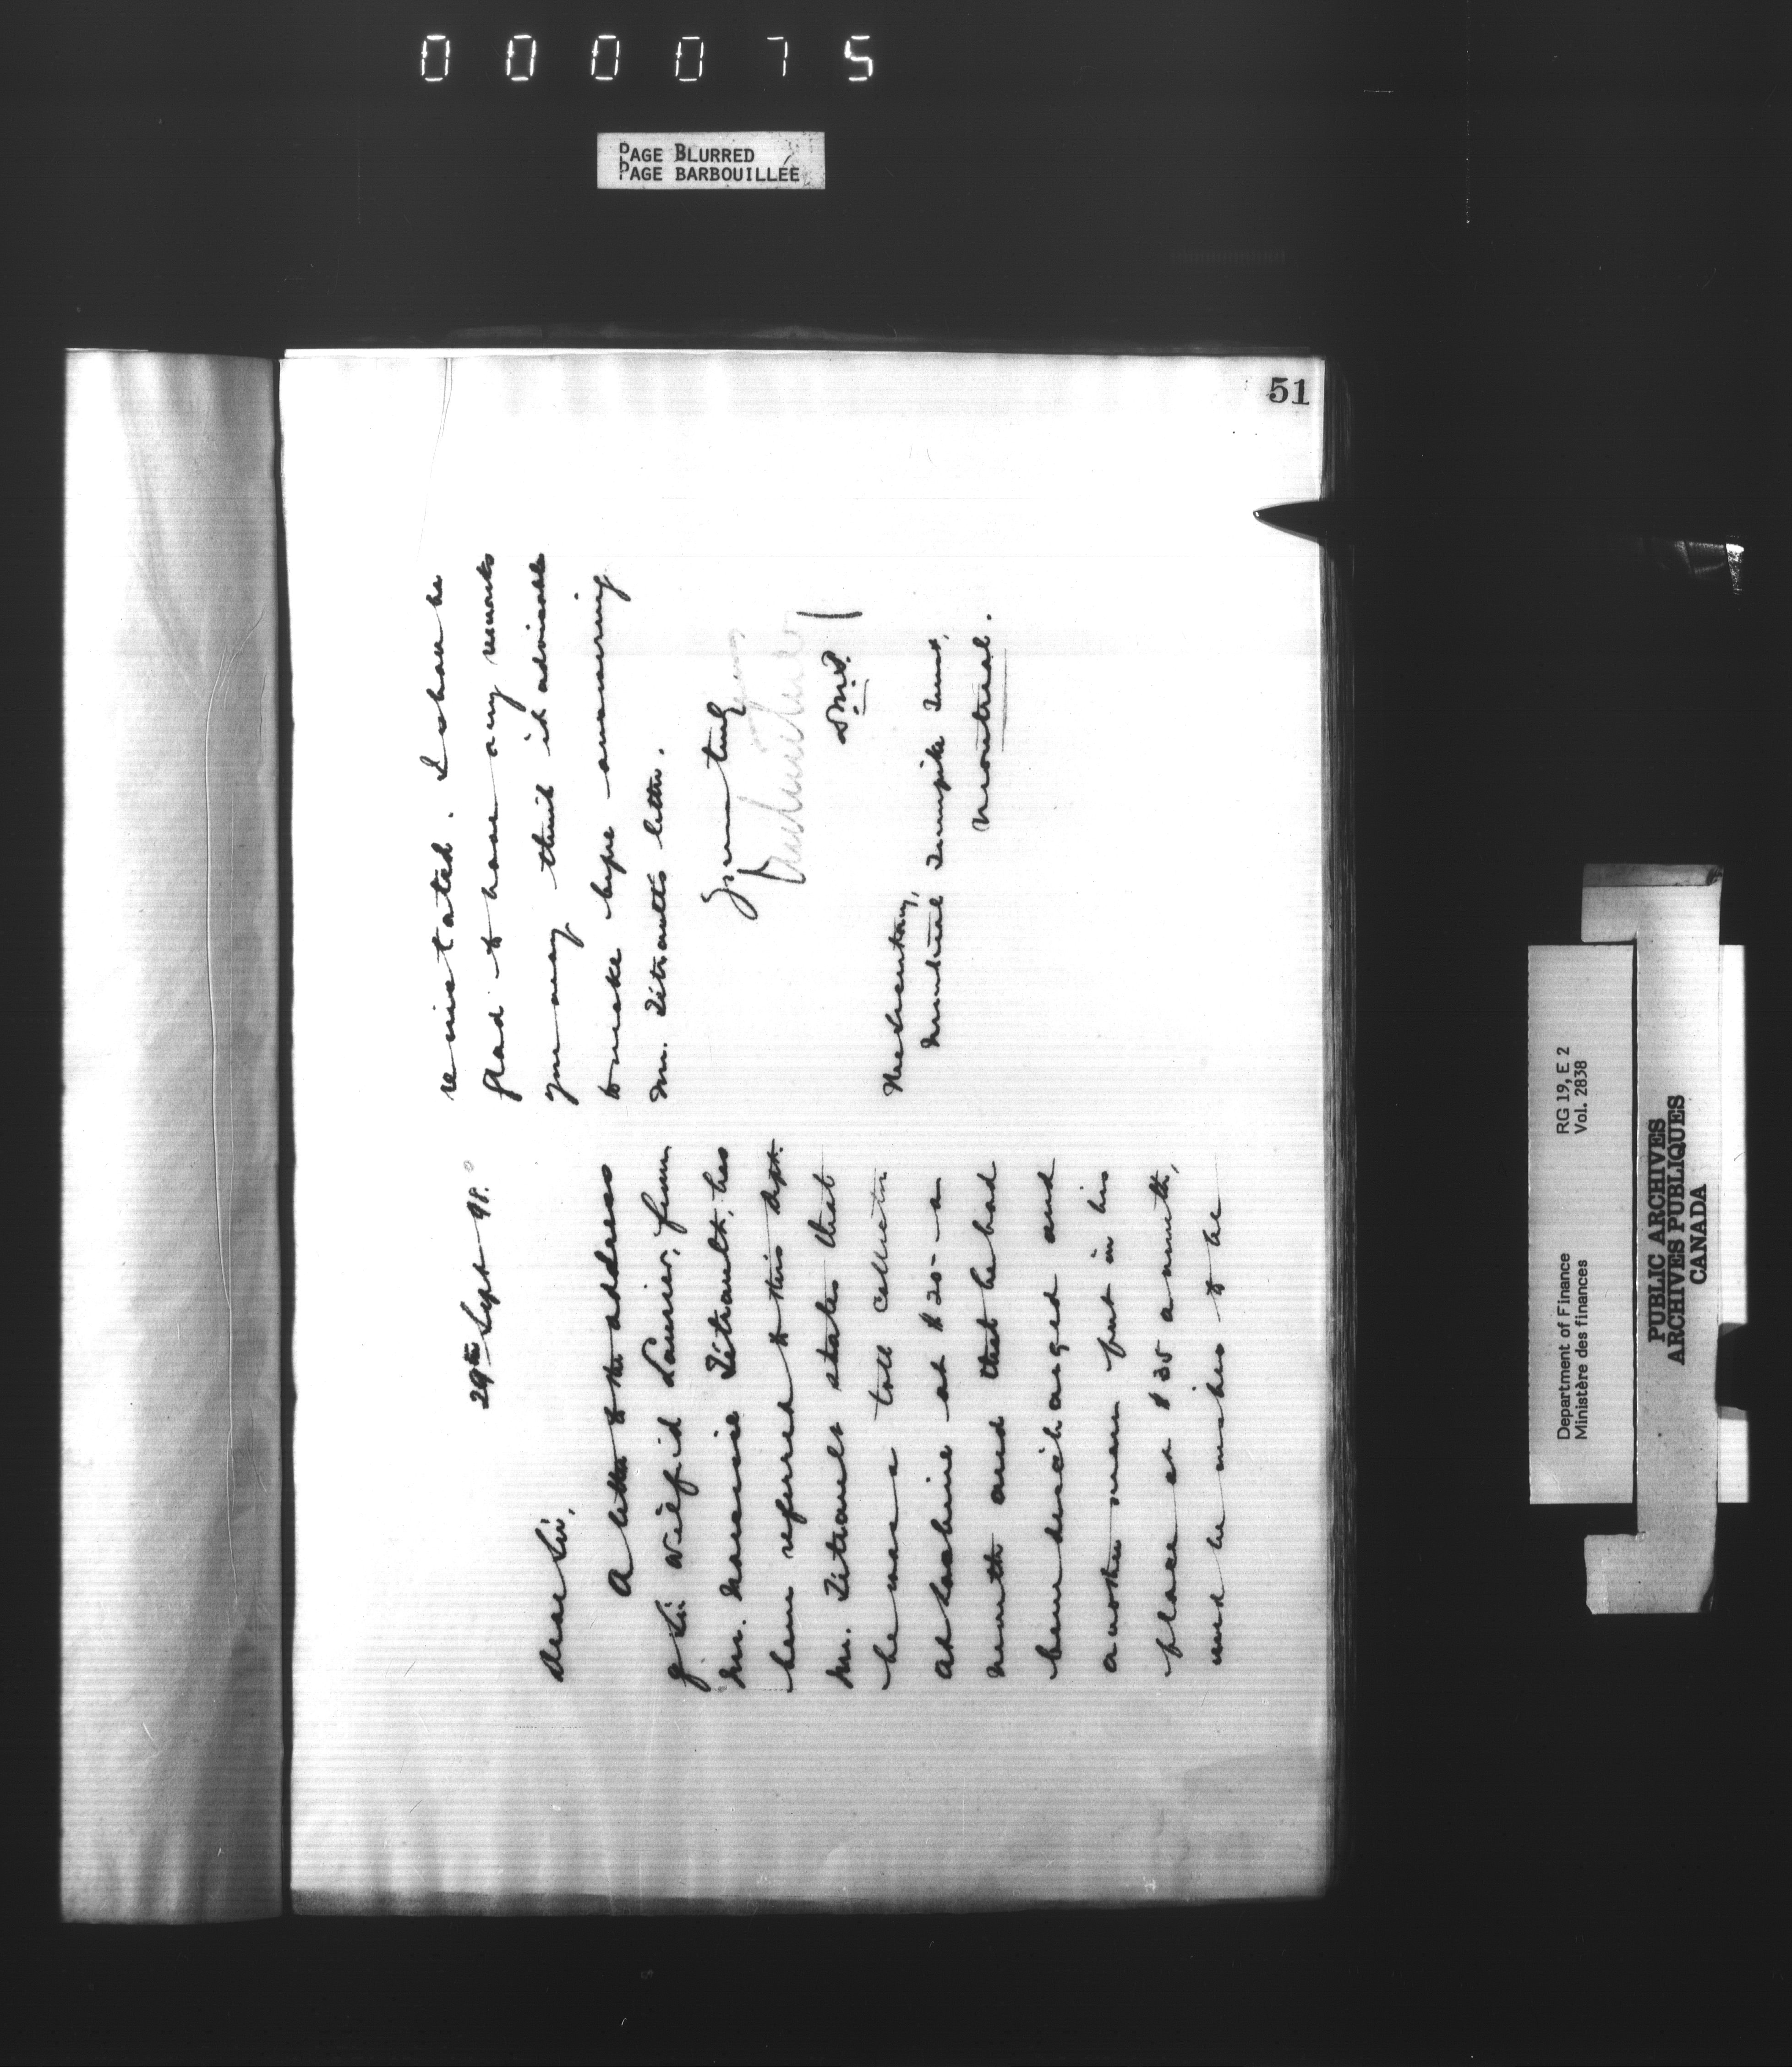 000075
PAGE BLURRED
PAGE BARBOUILLÉE
51
29th Sept 98.
Dear Sir,
A letter to the address
of Sir Wilfrid Laurier, from
Mr. Narcisse Tétrault, has
been referred to this Dept.
Mr. Tétrault states that
he was a toll collector
at Lachine at $20 - a
month and that he had
been discharged and
another man put in his
place at $35 a month,
and he wishes to be
reinstated. I should be
glad to have any remarks
you may think it advisable
to make before answering
Mr. Tétrault's letter.
Yours truly
D.M.F.
The Secretary,
Montreal Turnpike Trust,
Montreal.
Department of Finance
Ministère des finances
RG 19, E 2
Vol. 2838
PUBLIC ARCHIVES
ARCHIVES PUBLIQUES
CANADA